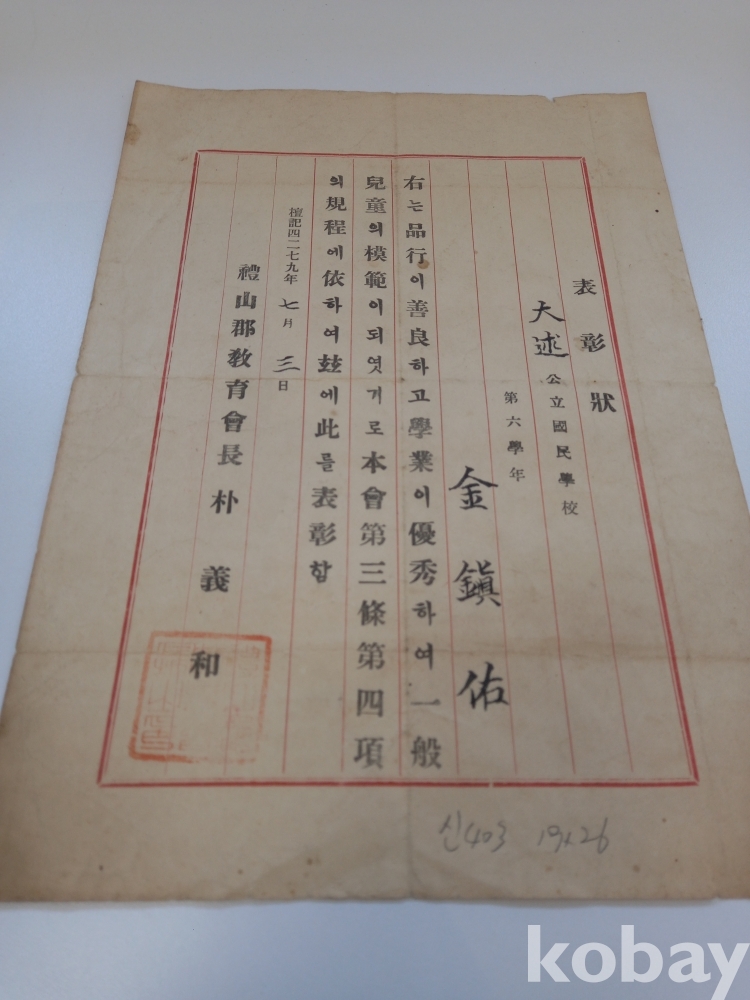 表彰狀
大述公立國民學校
第六學年
金鎭佑
右는品行이善良하고學業이優秀하여一般
兒童의模範이되엿기로本會第三條第四項
의規程에依하여玆에此를表彰함
檀記四二七九年七月三日
禮山郡敎育會長朴義和
신403 19×26
kobay